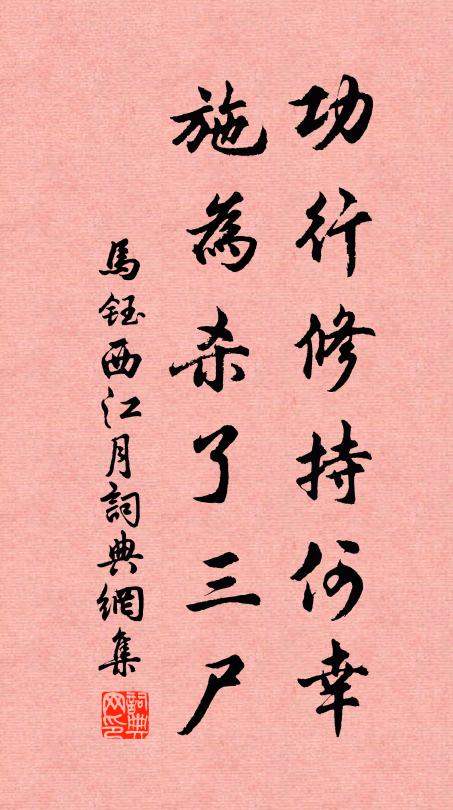 功行修持何幸
施為杀了三尸
馬鈺西江月詞典網集
詞典网印